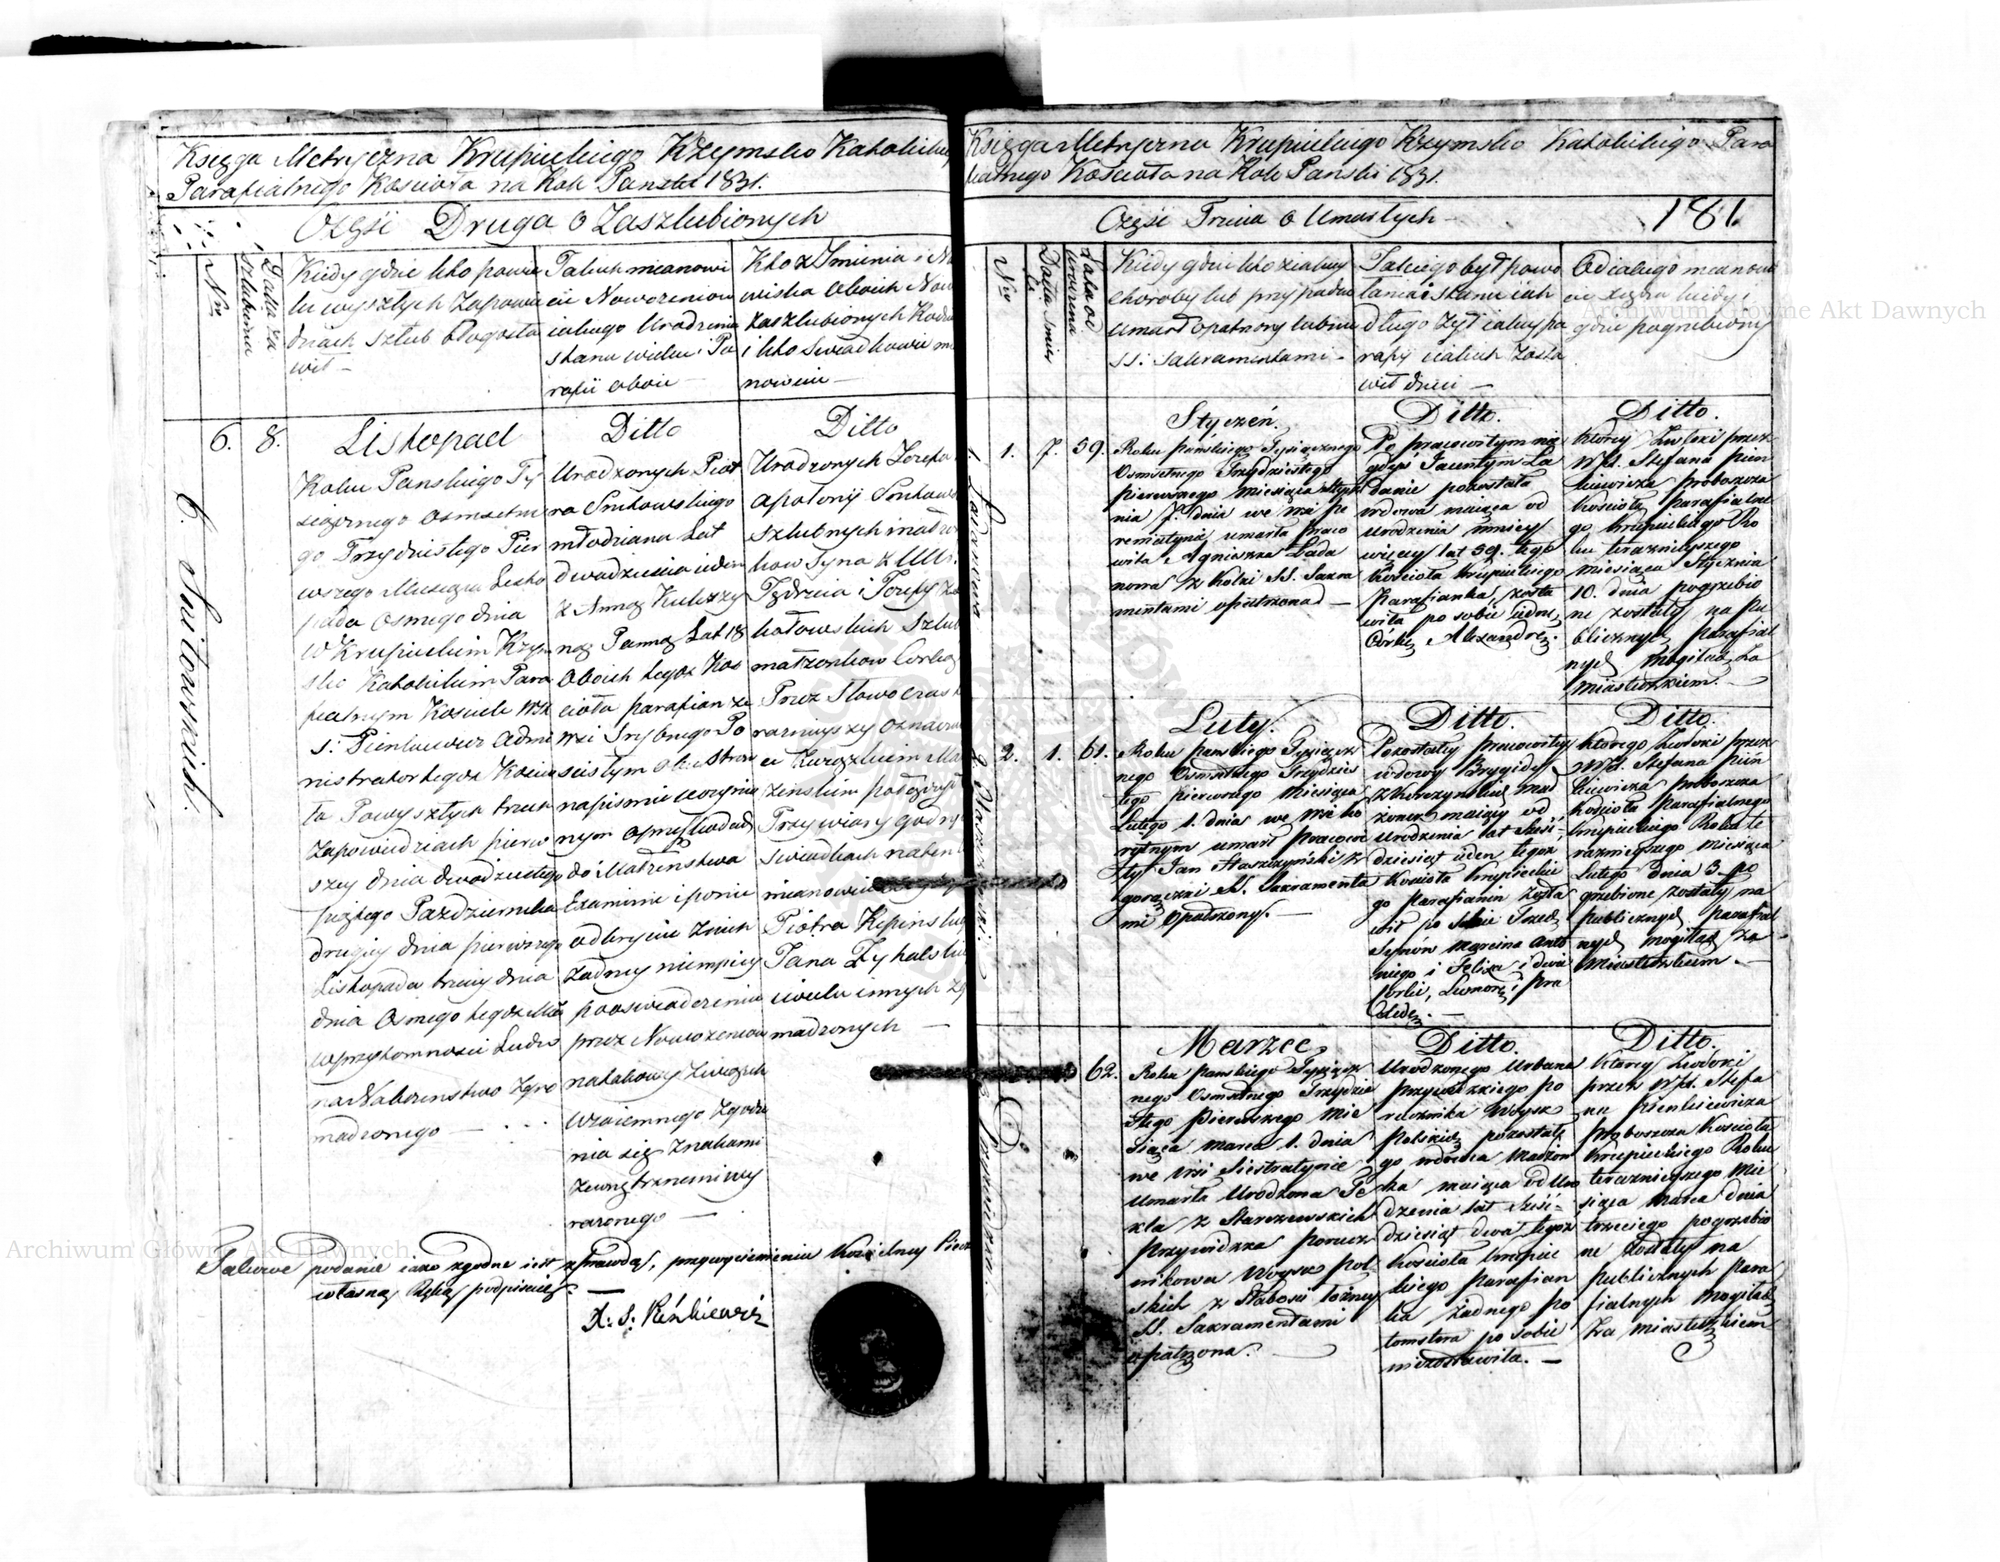 Księga Metryczna Krupieckiego Rzymsko Katolickie
Parafialnego Kościoła na Rok Pański 1831.
Część Druga o Zaszlubionych
Nro
Data Za
szlubienia
Kiedy gdzie kto powie
lu wyszłych Zapowie
dziach szlub błogosła
wił —
Jakich mianowi
cie Nowożeniow
iakiego Urodzenia
stanu wieku i Pa
rafii oboie —
Kto z Imienia i Na
wiska oboich Now
zaszlubionych Rodzi
i kto Swiadkowie mi
nowicie —
6. 8.
6. Snitowskich.
Listopad
Roku Pańskiego Ty
siącznego Osmsetne
go Trzydziestego Pier
wszego Miesiąca Listo
pada Osmego dnia
W Krupieckim Rzym
sko Katolickim Para
fialnym Kosciele WJX
S: Pienkiewicz Admi
nistrator tegoż Koscio
ła Po wyszłych trzech
Zapowiedziach pierw
szey dnia dwódziestego
piątego Pazdziernika
drugiey dnia pierwszego
Listopada trzeciey dnia
dnia Osmego tegoż Mie
w przytomności Ludu
na Nabożenstwo Zgro
madzonego —
Ditto
Urodzonych Piot
ra Snitowskiego
młodziana Lat
dwadziescia ieden
z Anną Kuleszy
ną Panną Lat 18
Oboich tegoż Kos
cioła parafian ze
wsi Srybnego Po
scisłym obu stron
napismie uczynio
nym o przeszkodach
do Małżenstwa
Examinie i ponie
odkryciu Znich
żadney niemniey
po oswiadczeniu
przez Nowożeniow
natakowy Związek
wzaiemnego Zgodze
nia się Znakami
Zewnętrznemi wy
rażonego —
Ditto
Urodzonych Jozefa
Apolonij Snitows
szlubnych małżon
kow Syna z
Jędrzeia i Jozefy Za
szlub
małżonkow Corką
Przez Słowo czas
raźnieyszy oznacza
ce Związkiem Mał
żenskim połączył
Przy wiary godnych
swiadkach na ten
mianowicie
Piotra Kępinsk
Jana Zykalski
i wielu innych zg
madzonych —
Takowe podanie iako zgodne iest z prawdą, przywycisnieniu Koscielney Piecz
własną Ręką podpisuię —
X. S. Pieńkiewicz
Księga Metryczna Krupieckiego Rzymsko Katolickiego Para
fialnego Kościoła na Rok Pański 1831.
Część Trzecia o Umarłych —
181.
Nro
Data Smier
ci
Lata od
urodzenia
Kiedy gdzie kto z iakiey
choroby lub przypadku
umarł opatrzony lub nie
SS: Sakramentami —
Jakiego był powo
łania i stanu iak
długo żył iakiey pa
rafij i iakich zosta
wił dzieci —
Od iakiego mianowi
cie xiędza kiedy i
gdzie pogrzebiony
1. 7. 59.
1. Ladanowa
Styczeń.
Roku pańskiego Tysiącznego
Osmsetnego Trzydziestego
pierwszego miesiąca Stycz
nia 7. dnia we wsi Je
remiatyni umarła praco
wita Agnieszka Lada
nowa z Kolki SS. Sakra
mentami opatrzona —
Ditto.
Po pracowitym nie
gdyś Jacentym La
danie pozostała
wdowa maiąca od
urodzenia mniey
więcey lat 59. tego
Kościoła Krupieckiego
Parafianka, zosta
wiła po sobie iedne
Córkę Alexandrę.
Ditto.
którey Zwłoki przez
WJX. Stefana Pien
kiewicza proboszcza
Kościoła parafialne
go Krupieckiego Ro
ku teraznieyszego
miesiąca Stycznia
10. dnia pogrzebio
ne zostały na Pu
blicznych parafial
nych mogiłach Za
miasteczkiem. —
2. 1. 61.
Luty.
Roku pańskiego Tysiącz
nego Osmsetnego Trzydzies
tego pierwszego miesiąca
Lutego 1. dnia we wsi Ko
rytnym umarł pracowi
ty Jan Staszczyński z
gorączki SS. Sakramenta
mi opatrzony. —
Ditto.
Pozostałey pracowitey
wdowy Brygidy
z Korczyńskich mał
żonek maiący od
urodzenia lat sześć-
dziesiąt ieden tegoż
Kościoła Krupieckie
go parafianin zosta
wił po sobie Trzech
Synów Marcina Anto
niego i Felixa i dwie
Córki,
Ditto.
którego Zwłoki przez
WJX. Stefana Pien
kiewicza proboszcza
Kościoła parafialnego
Krupieckiego Roku te
raznieyszego miesiąca
Lutego dnia 3. po
grzebione zostały na
publicznych parafial
nych mogiłach za
Miasteczkiem. —
62.
Marzec.
Roku pańskiego Tysiącz
nego Osmsetnego Trzydzie
stego Pierwszego Mie
siąca marca 1. dnia
we wsi Siestratynie
Umarła Urodzona Te
kla z Starzewskich
Przywidzka porucz
nikowa Woysk Pol
skich z słabości łożney
SS. Sakramentami
opatrzona. —
Ditto.
Urodzonego Urbana
Przywidzkiego po
rucznika Woysk
Polskich pozostałe
go wdowca Małżon
ka maiąca od Uro
dzenia lat sześć-
dziesiąt dwa tegoż
Kościoła Krupiec
kiego parafian
ka żadnego po
tomstwa po sobie
niezostawiła. —
Ditto.
którey Zwłoki
przez WJX. Stefa
na Pienkiewicza
Proboszcza Kościoła
Krupieckiego Roku
teraznieyszego Mie
siąca marca dnia
trzeciego pogrzebio
ne zostały na
publicznych para
fialnych mogiłach
Za miasteczkiem
Archiwum Główne Akt Dawnych
Archiwum Główne Akt Dawnych